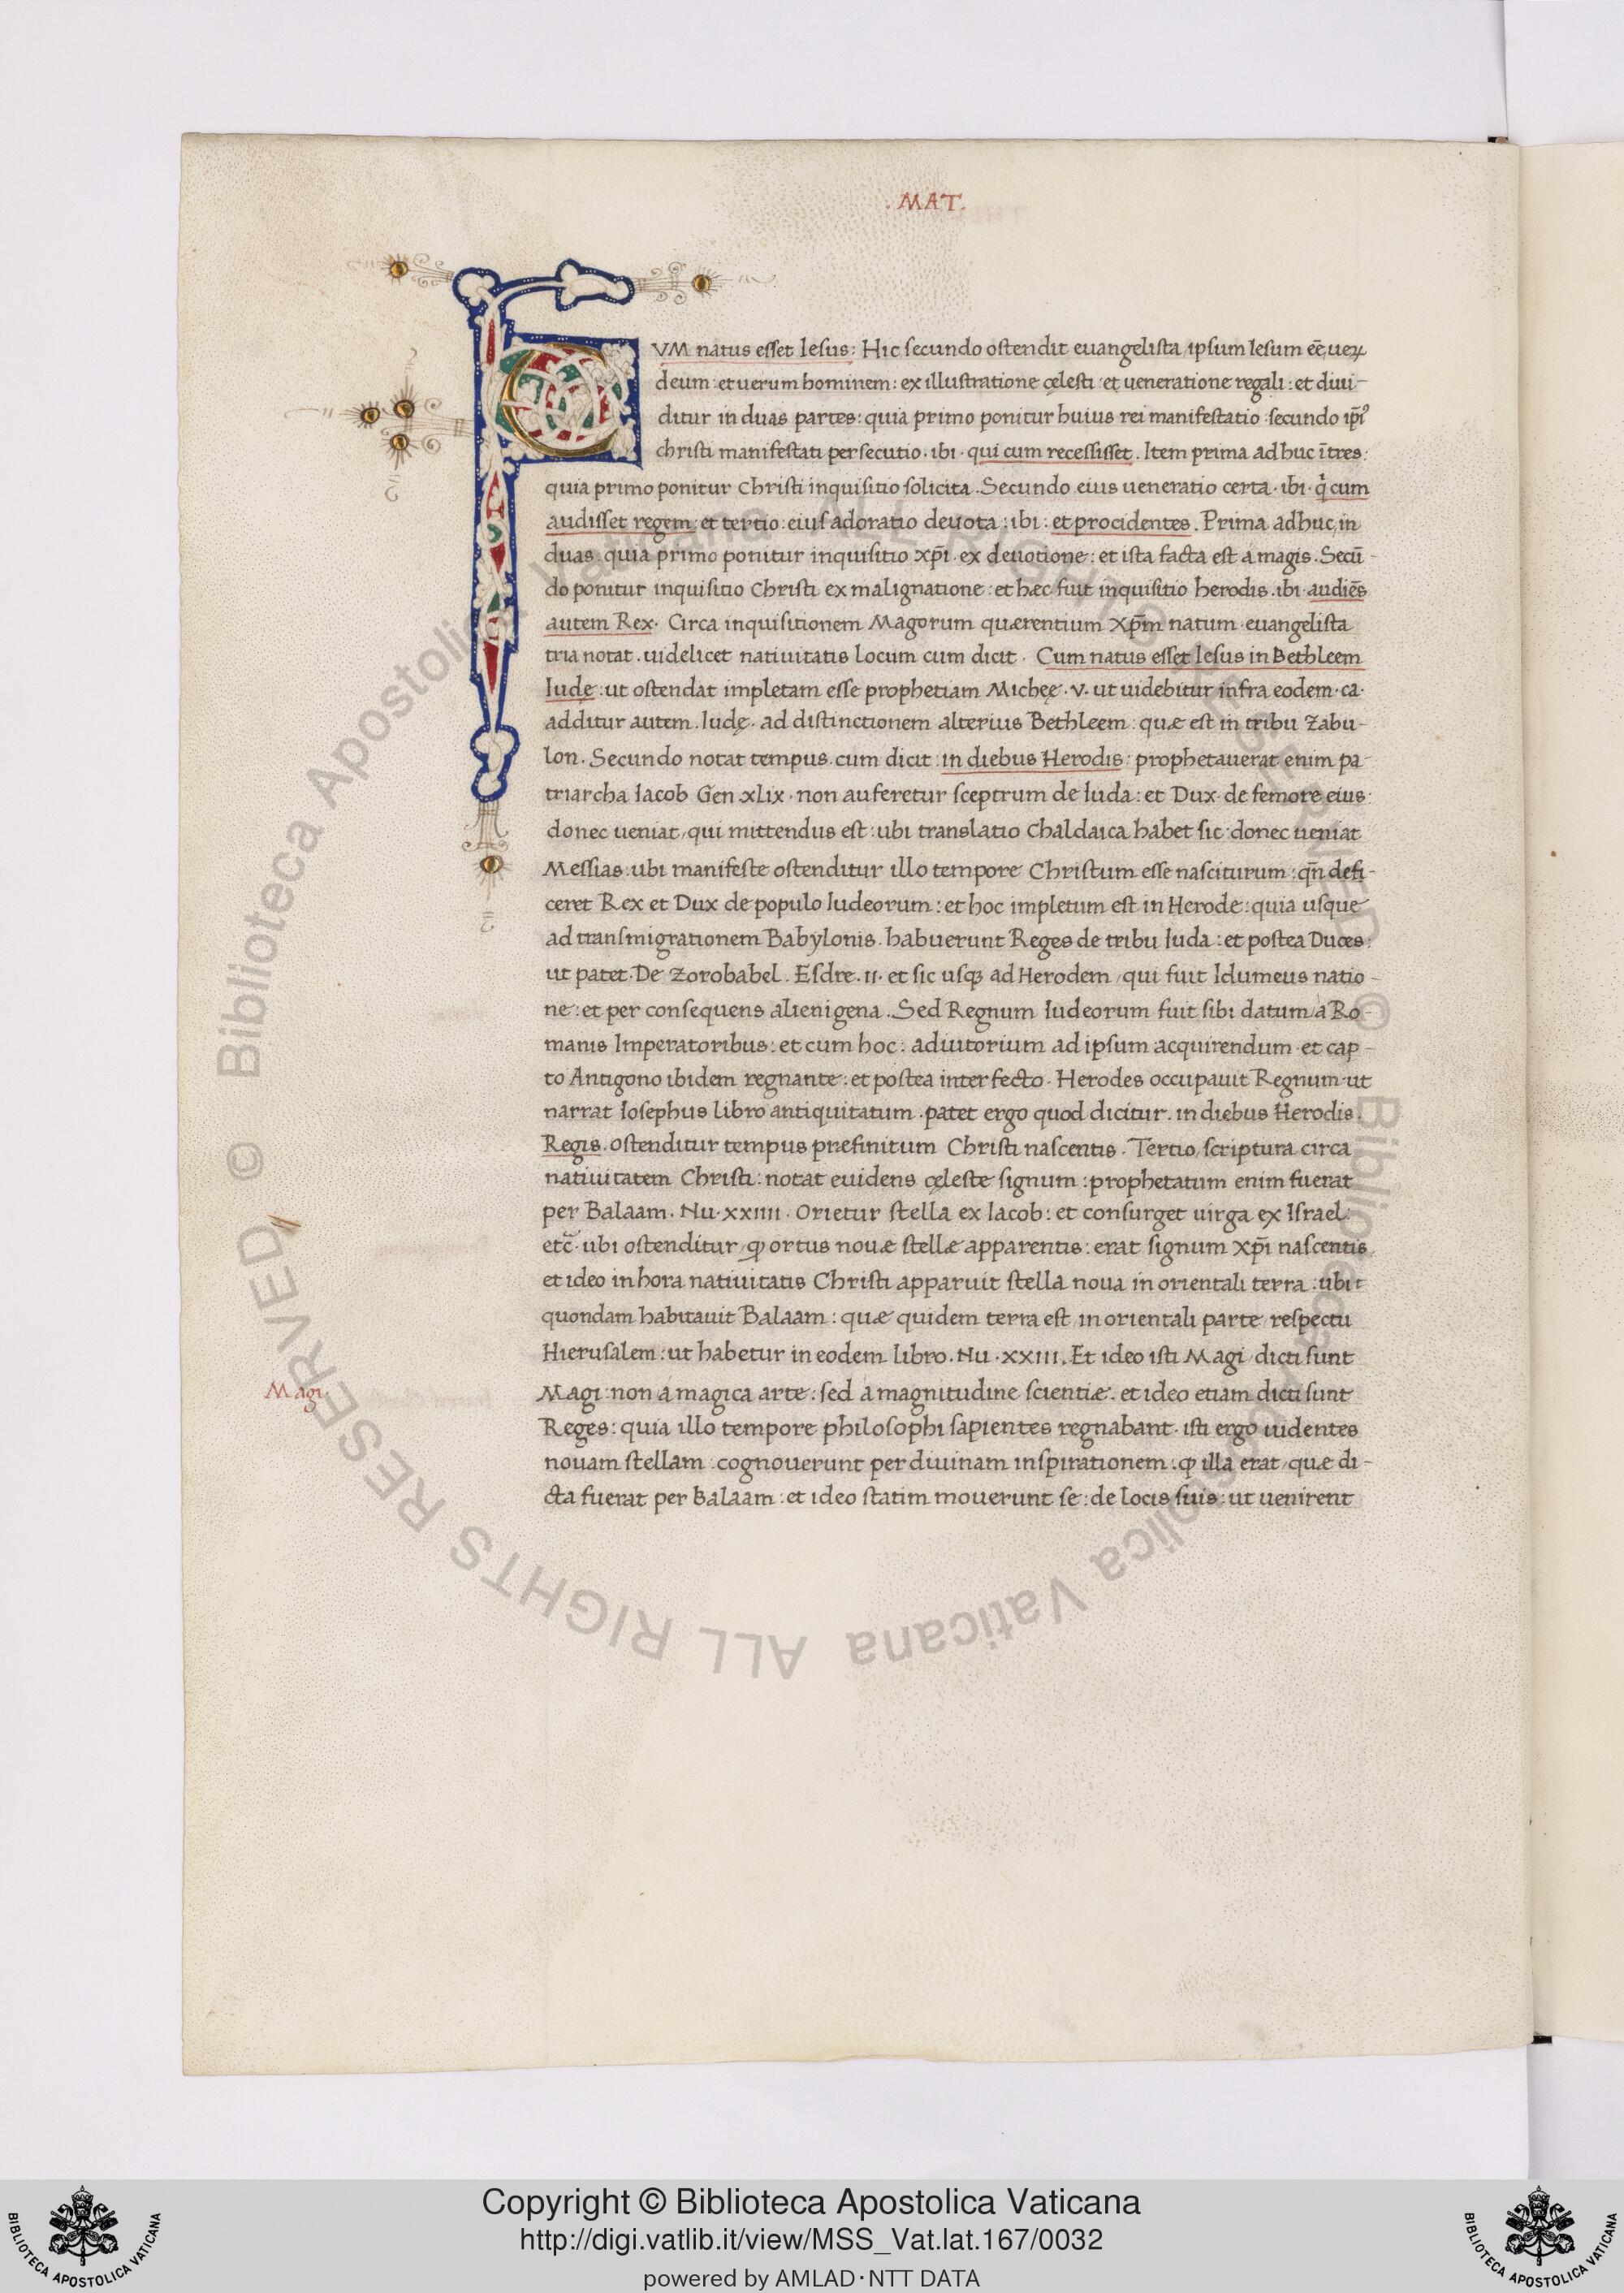 . MAT.
CVM natus esset Iesus: Hic secundo ostendit euangelista/ipsum Iesum eē,ueꝝ
deum: et uerum hominem: ex illustratione cęlesti: et ueneratione regali: et diui-
ditur in duas partes: quia primo ponitur huius rei manifestatio· secundo ip̄iꝰ
christi manifestati persecutio. ibi· qui cum recessisset. Item prima adhuc ītres:
quia primo ponitur Christi inquisitio solicita. Secundo eius ueneratio certa· ibi· q̇ cum
audisset regem: et tertio: eius adoratio deuota: ibi: et procidentes. Prima adhuc, in
duas: quia primo ponitur inquisitio xp̄i· ex deuotione: et ista facta est a magis. Secū-
do ponitur inquisitio Christi ex malignatione: et hæc fuit inquisitio herodis. ibi· audiēs
autem Rex. Circa inquisitionem Magorum quærentium Xp̄m natum· euangelista
tria notat. uidelicet natiuitatis locum cum dicit· Cum natus esset Iesus in Bethleem
Iudę: ut ostendat impletam esse prophetiam Michęę· v. ut uidebitur infra eodem· ca·
additur autem. Iudę· ad distinctionem alterius Bethleem: quæ est in tribu Zabu-
lon. Secundo notat tempus. cum dicit: in diebus Herodis: prophetauerat enim pa-
triarcha Iacob Gen xlix· non auferetur sceptrum de Iuda: et Dux· de femore eius:
donec ueniat, qui mittendus est: ubi translatio Chaldaica habet sic: donec ueniat
Messias: ubi manifeste ostenditur illo tempore Christum esse nasciturum: qn̄ defi-
ceret Rex et Dux de populo Iudeorum: et hoc impletum est in Herode: quia usque
ad transmigrationem Babylonis. habuerunt Reges de tribu Iuda: et postea Duces:
ut patet. De Zorobabel. Esdre. II· et sic usqꝫ ad Herodem, qui fuit Idumeus natio-
ne: et per consequens alienigena. Sed Regnum Iudeorum fuit sibi datum, a Ro-
manis Imperatoribus: et cum hoc: adiutorium ad ipsum acquirendum· et cap-
to Antigono ibidem regnante: et postea interfecto· Herodes occupauit Regnum· ut
narrat Iosephus libro antiquitatum· patet ergo quod dicitur. in diebus Herodis.
Regis. ostenditur tempus præfinitum Christi nascentis. Tertio, scriptura circa
natiuitatem Christi: notat euidens cęleste signum: prophetatum enim fuerat
per Balaam. Nu· xxiiii· Orietur stella ex Iacob: et consurget uirga ex Israel
etc̄· ubi ostenditur, ꝙ ortus nouæ stellæ apparentis: erat signum xp̄i nascentis
et ideo in hora natiuitatis Christi apparuit stella noua in orientali terra: ubi
quondam habitauit Balaam: quæ quidem terra est, in orientali parte, respectu
Hierusalem: ut habetur in eodem libro. Nu· xxiii. Et ideo isti Magi, dicti sunt
Magi.
Magi: non a magica arte: sed a magnitudine scientiæ. et ideo etiam dicti sunt
Reges: quia illo tempore philosophi sapientes regnabant· isti ergo uidentes
nouam stellam. cognouerunt per diuinam inspirationem: ꝙ illa erat, quæ di-
cta fuerat per Balaam: et ideo statim mouerunt se: de locis suis: ut uenirent
© Biblioteca Apostolica Vaticana ALL RIGHTS RESERVED
© Biblioteca Apostolica Vaticana ALL RIGHTS RESERVED
Copyright © Biblioteca Apostolica Vaticana
http://digi.vatlib.it/view/MSS_Vat.lat.167/0032
powered by AMLAD·NTT DATA
BIBLIOTECA APOSTOLICA VATICANA
BIBLIOTECA APOSTOLICA VATICANA